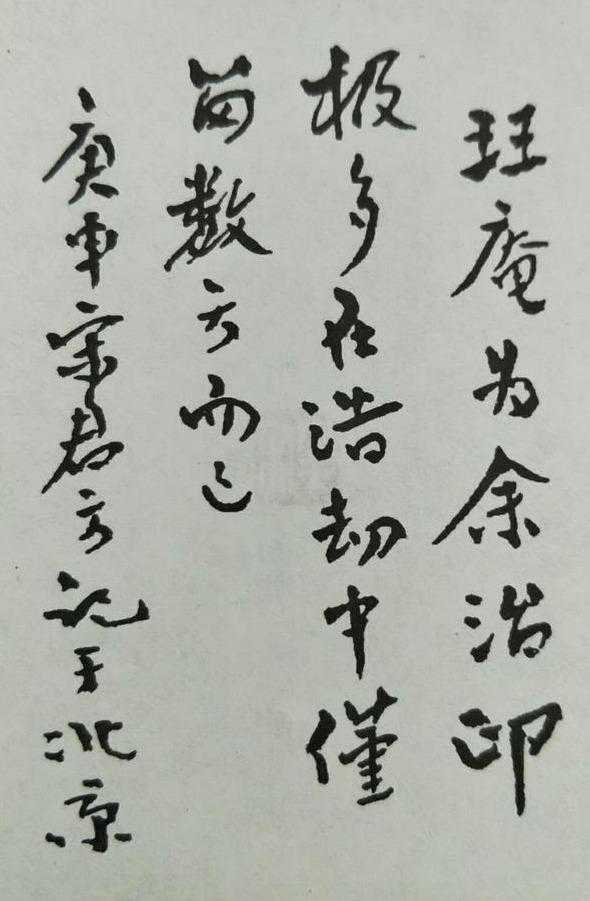 珏庵为余治印
极多在浩劫中僅
留数方而已
庚申宋君方记于北京